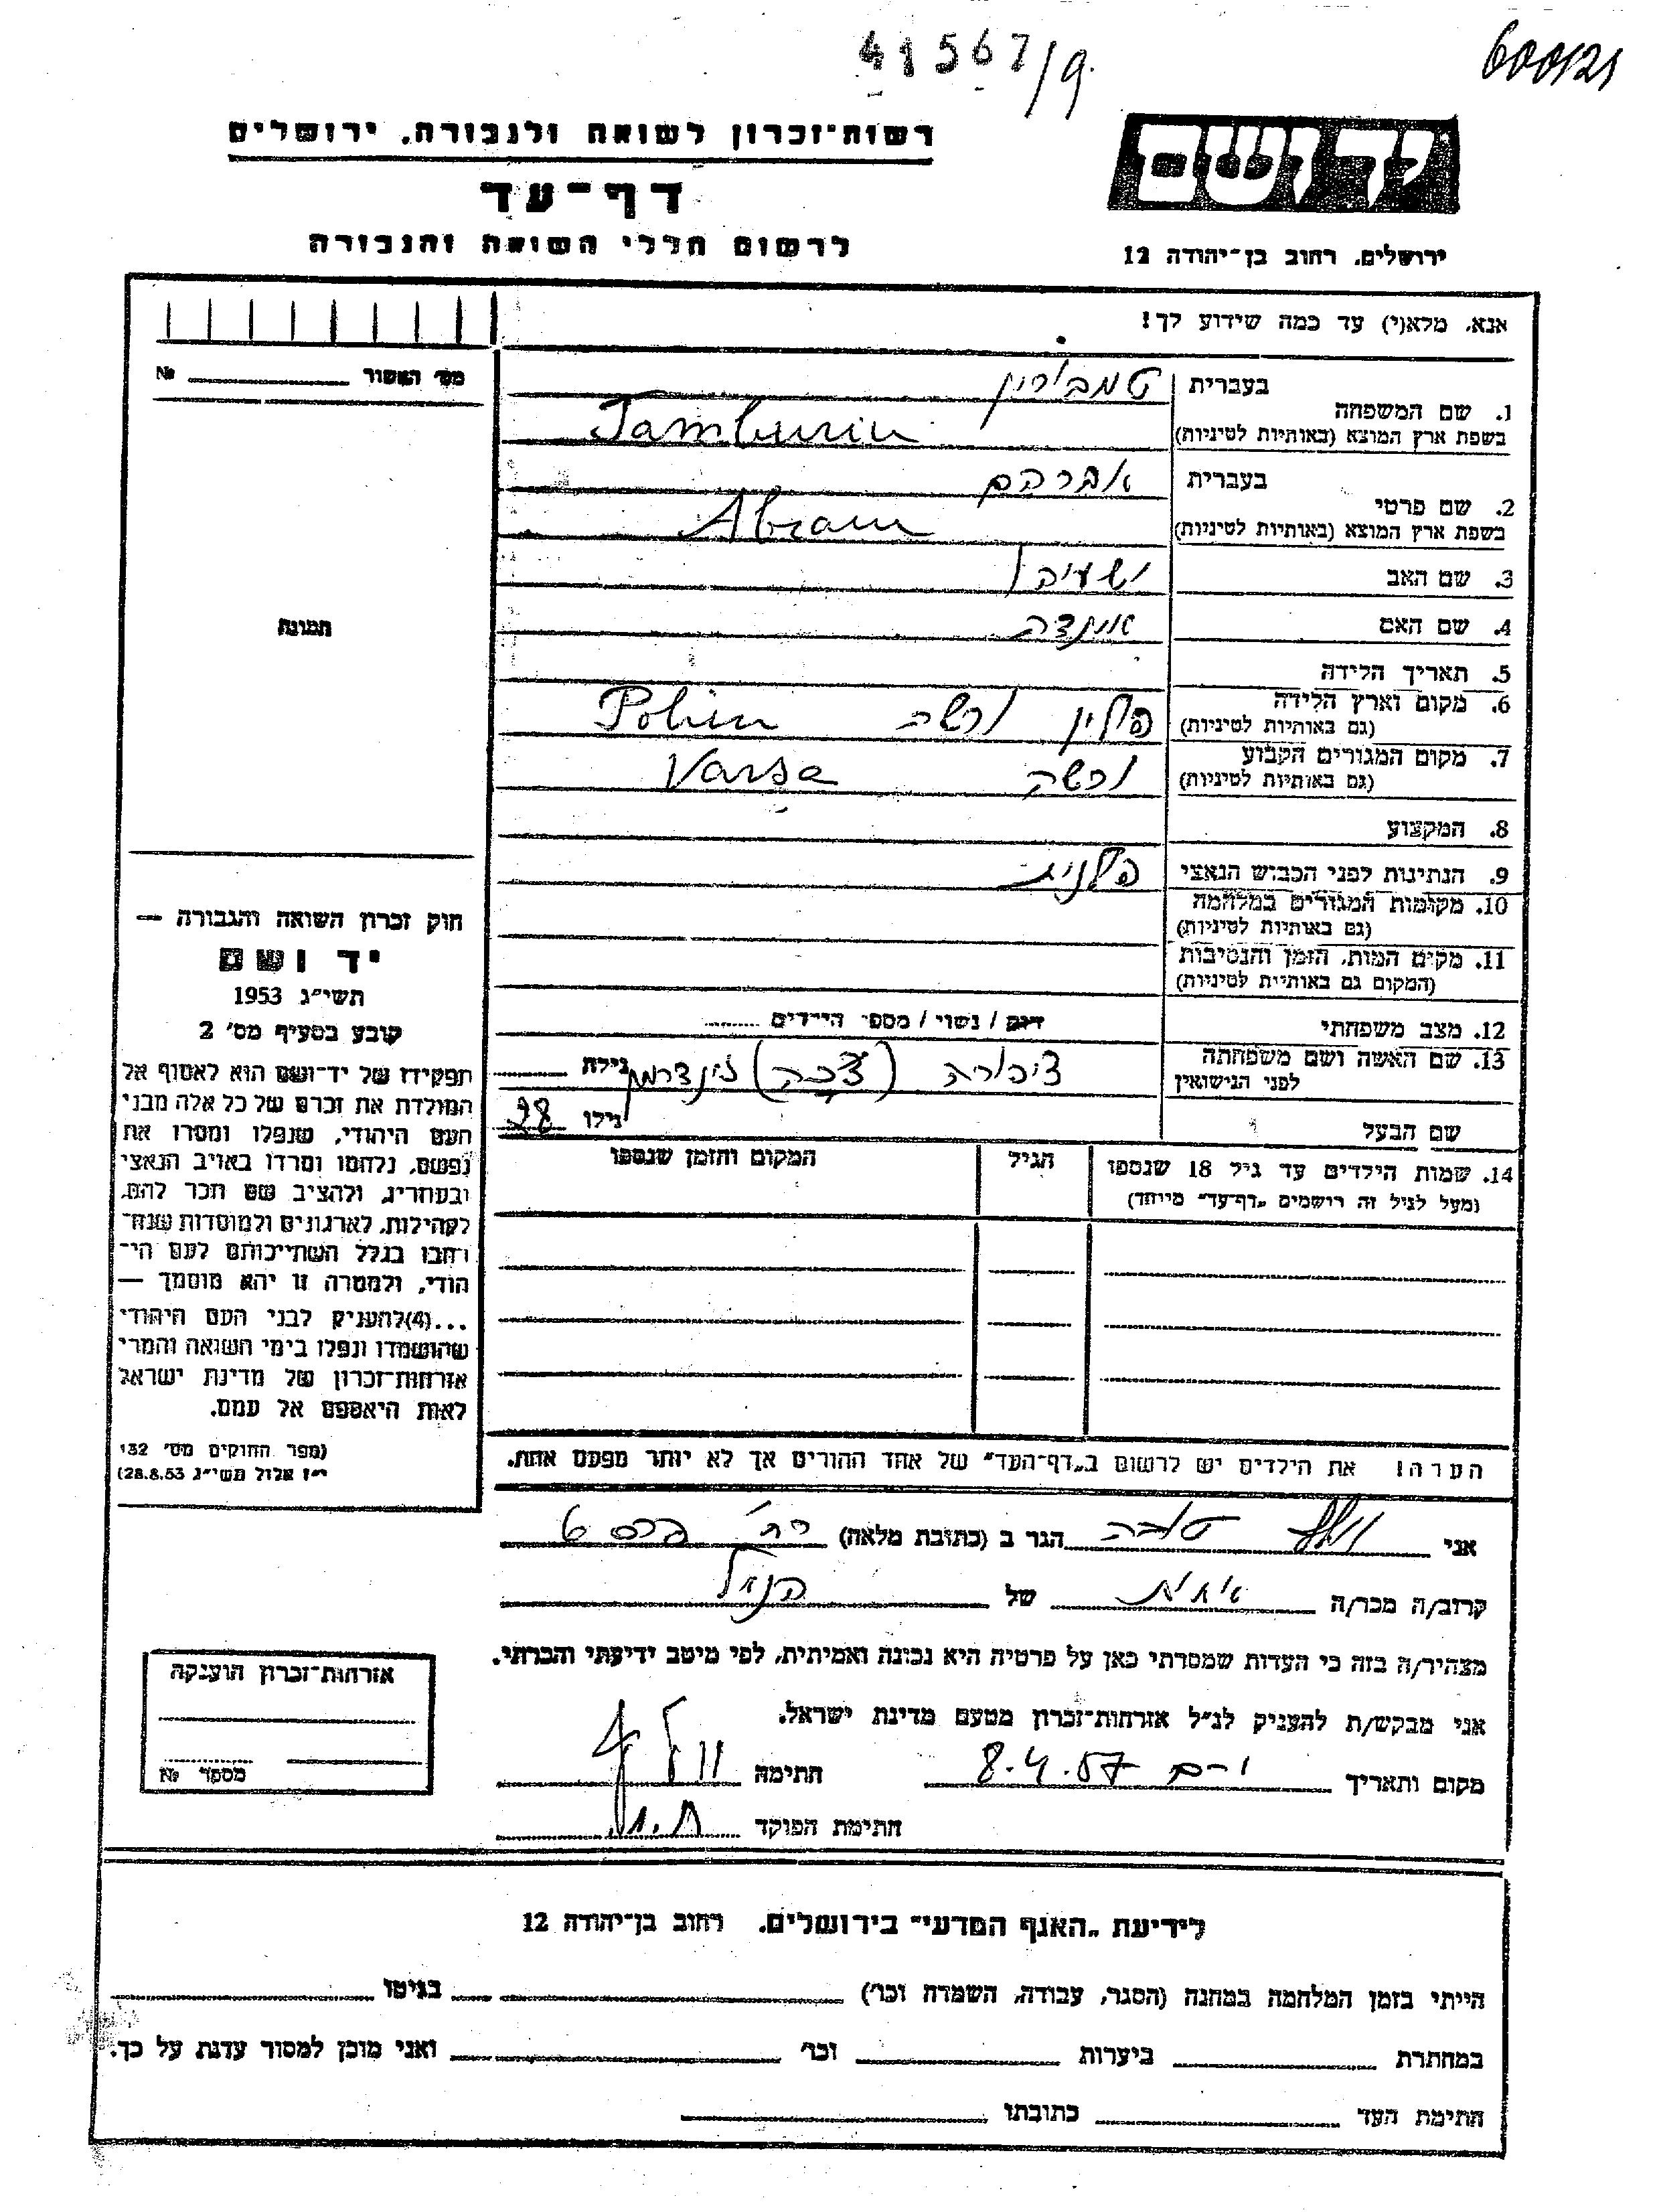 41567/9.
600121
רשות־זכרון לשואה ולגבורה, ירושלים
דף־עד
לרשום חללי השואה והגבורה
יד ושם
ירושלים, רחוב בן־יהודה 12
אנא, מלא(י) עד כמה שידוע לך!
מס׳ האשור № 
תמונה
1. שם המשפחה
בעברית טמבורין
בשפת ארץ המוצא (באותיות לטיניות) Tamburin
2. שם פרטי
בעברית אברהם
בשפת ארץ המוצא (באותיות לטיניות) Abram
3. שם האב ישעיהו
4. שם האם
5. תאריך הלידה
6. מקום וארץ הלידה פולין ורשה Polin
(גם באותיות לטיניות)
7. מקום המגורים הקבוע ורשה Varsa
(גם באותיות לטיניות)
8. המקצוע
9. הנתינות לפני הכבוש הנאצי פולנית
10. מקומות המגורים במלחמה
(גם באותיות לטיניות)
11. מקום המות, הזמן והנסיבות
(המקום גם באותיות לטיניות)
12. מצב משפחתי רווק / נשוי / מספר הילדים
13. שם האשה ושם משפחתה
לפני הנישואין
ציפורה גילה
שם הבעל גילו 28
14. שמות הילדים עד גיל 18 שנספו הגיל המקום והזמן שנספו
(מעל לגיל זה רושמים „דף־עד״ מיוחד)
הערה! את הילדים יש לרשום ב„דף־העד״ של אחד ההורים אך לא יותר מפעם אחת.
חוק זכרון השואה והגבורה —
יד ושם
תשי״ג 1953
קובע בסעיף מס׳ 2
תפקידו של יד־ושם הוא לאסוף אל
המולדת את זכרם של כל אלה מבני
העם היהודי, שנפלו ומסרו את
נפשם, נלחמו ומרדו באויב הנאצי
ובעוזריו, ולהציב שם וזכר להם,
לקהילות, לארגונים ולמוסדות שנח־
רבו בגלל השתייכותם לעם הי־
הודי, ולמטרה זו יהא מוסמך —
...(4)להעניק לבני העם היהודי
שהושמדו ונפלו בימי השואה והמרי
אזרחות־זכרון של מדינת ישראל
לאות היאספם אל עמם.
(ספר החוקים מס׳ 132
י״ז אלול תשי״ג 28.8.53)
אני טובה הגר ב (כתובת מלאה)
קרוב/ה מכר/ה של הנ״ל
מצהיר/ה בזה כי העדות שמסרתי כאן על פרטיה היא נכונה ואמיתית, לפי מיטב ידיעתי והכרתי.
אני מבקש/ת להעניק לנ״ל אזרחות־זכרון מטעם מדינת ישראל.
מקום ותאריך 8.4.57 חתימה
חתימת הפוקד
אזרחות־זכרון הוענקה
מספר №
לידיעת „האגף המדעי״ בירושלים. רחוב בן־יהודה 12
הייתי בזמן המלחמה במחנה (הסגר, עבודה, השמדה וכו׳) בגיטו
במחתרת ביערות וכו׳ ואני מוכן למסור עדות על כך.
חתימת העד כתובתו